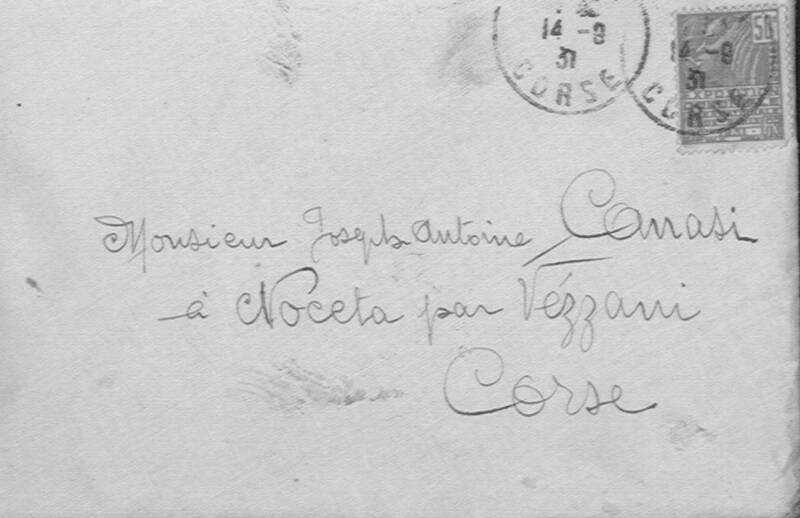 14 -8
31
CORSE
14 -8
31
CORSE
50c
EXPO
Monsieur Joseph Antoine Carrasi
à Noceta par Vézzani
Corse